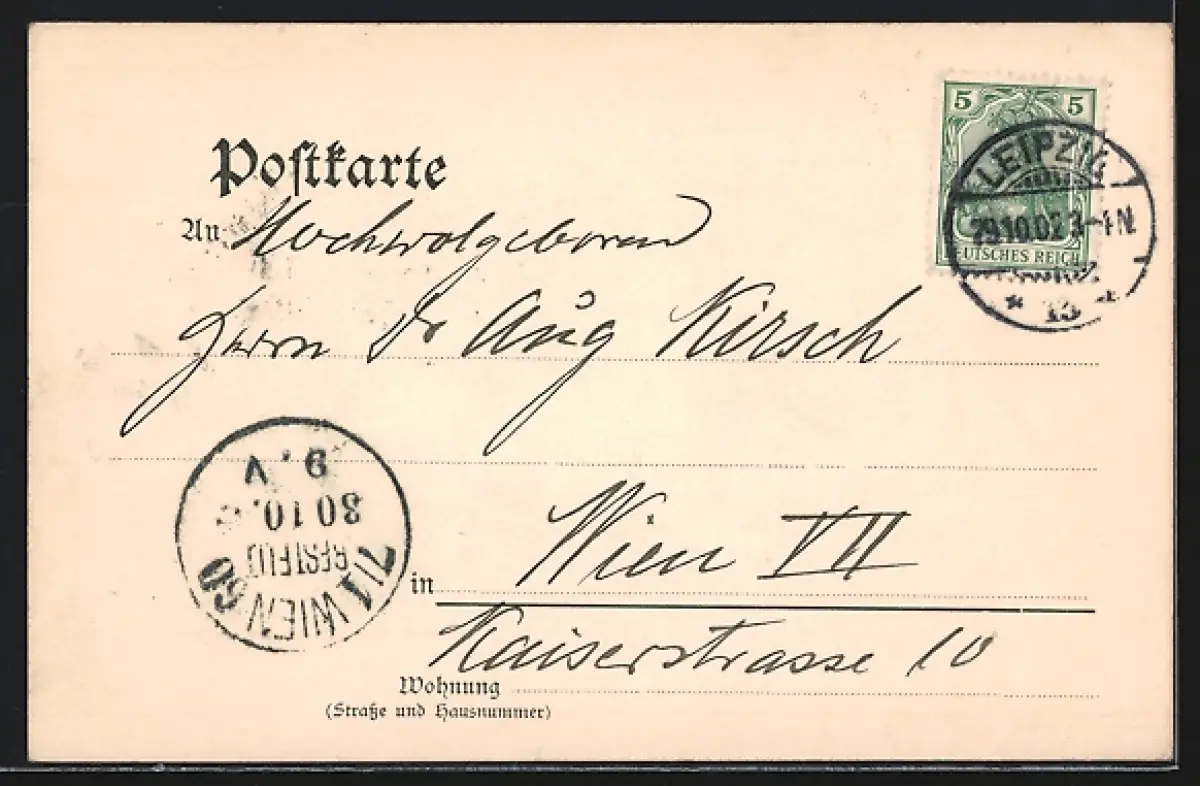 Postkarte
5 5
LEIPZIG
29.10.02 3-4N
DEUTSCHES REICH
* 13
An Hochwolgeboren
Herrn Dr Aug Kirsch
7/1 WIEN 60
BESTELLT
30 10.
9.V
in Wien VII
Kaiserstrasse 10
Wohnung
(Straße und Hausnummer)